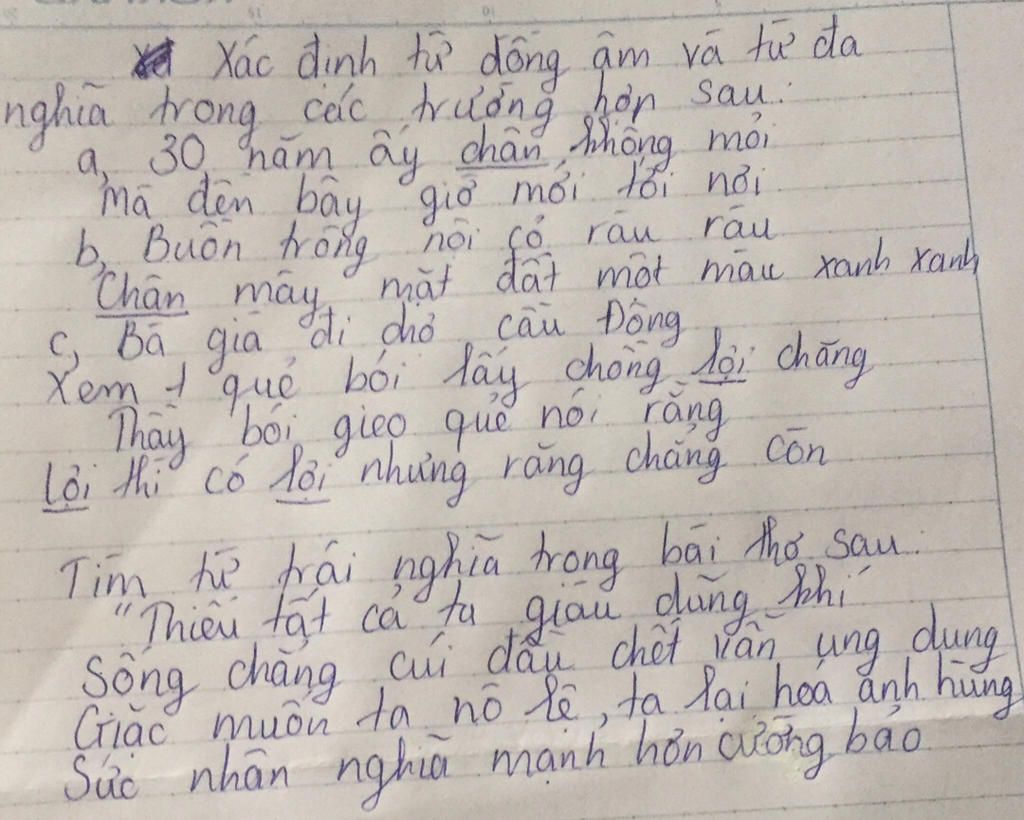 Xác định từ đồng âm và từ đa
nghĩa trong các trường hợp sau:
a, 30 năm ấy chân không mỏi
Mà đến bây giờ mới tới nơi
b, Buồn trông nội cỏ rầu rầu
Chân mây mặt đất một màu xanh xanh
c, Bà già đi chợ cầu Đông
Xem 1 quẻ bói lấy chồng lợi chăng
Thầy bói gieo quẻ nói rằng
Lợi thì có lợi nhưng răng chẳng còn
Tìm từ trái nghĩa trong bài thơ sau:
"Thiếu tất cả ta giàu dũng khí
Sống chẳng cúi đầu chết vẫn ung dung
Giặc muốn ta nô lệ, ta lại hoá anh hùng
Sức nhân nghĩa mạnh hơn cường bạo